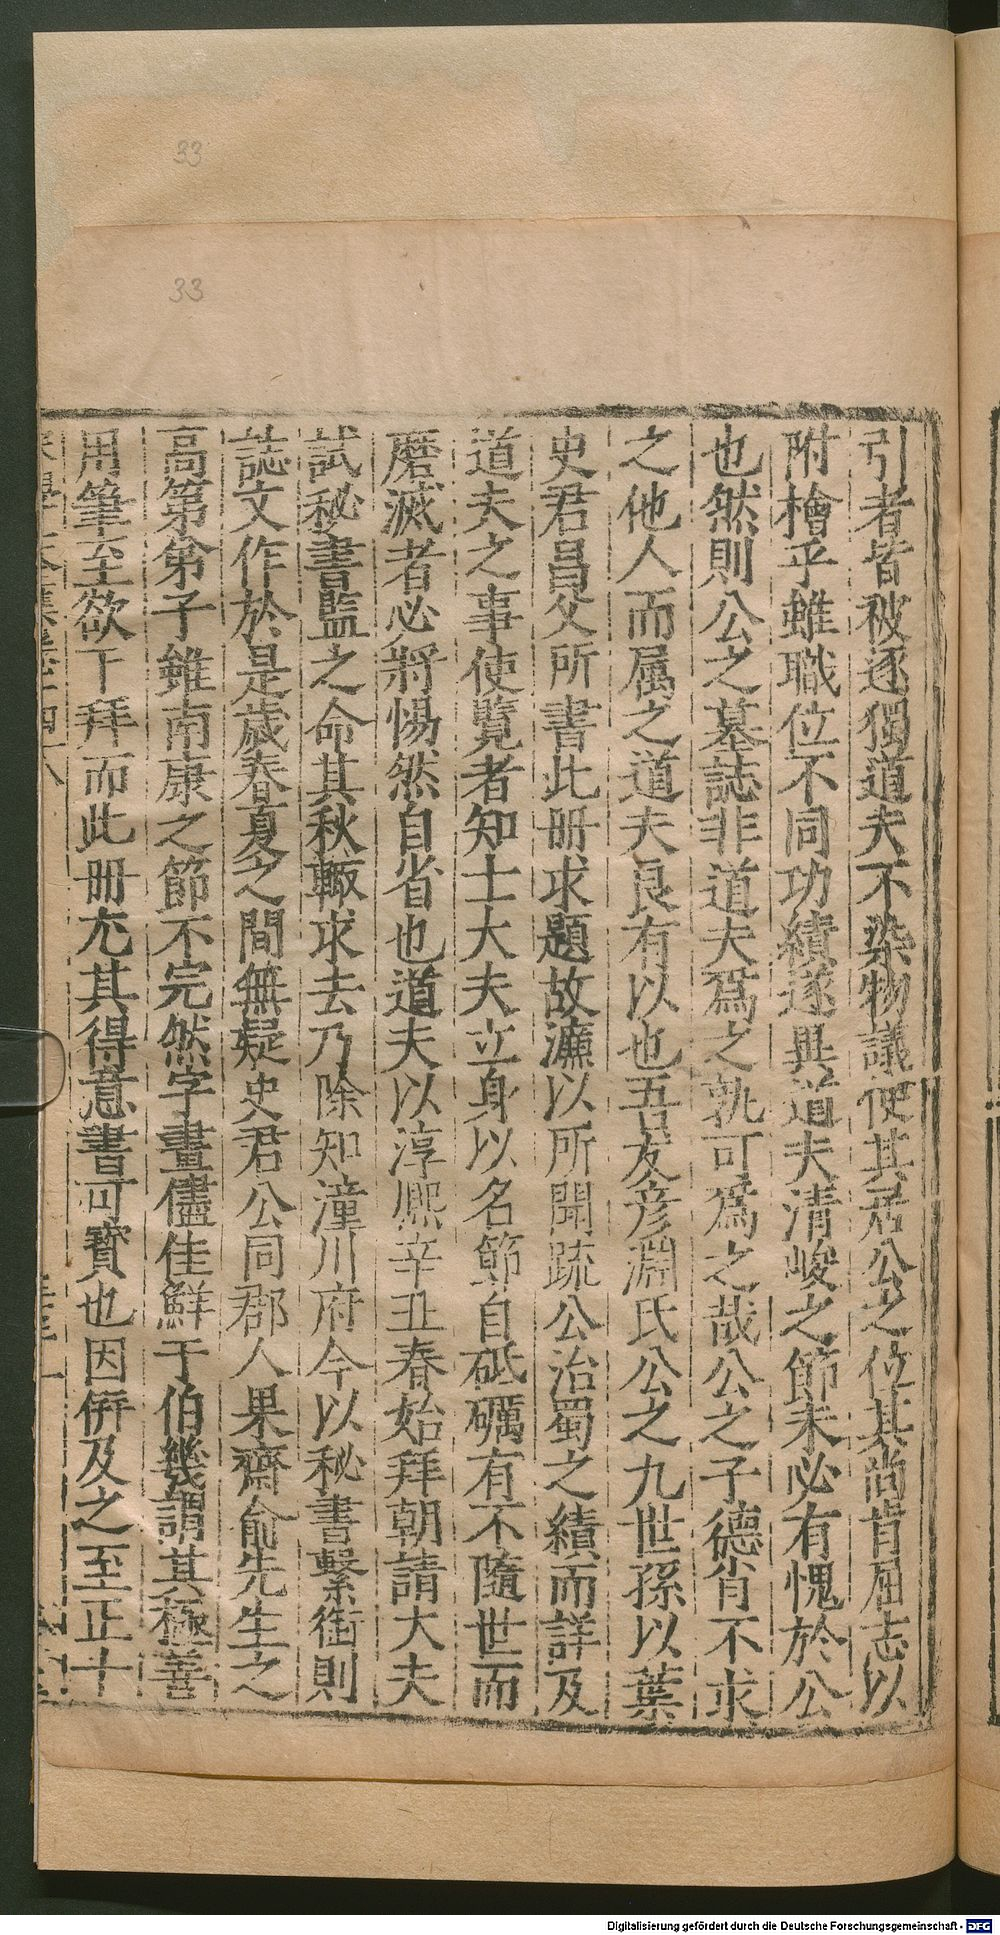 33
33
引者皆被逐獨道夫不染物議使其居公之位其尚肯屈志以
附檜乎雖職位不同功績遂與道夫清峻之節未必有愧於公
也然則公之墓誌非道夫爲之孰可爲之哉公之子德肖不求
之他人而属之道夫良有以也吾友彦淵氏公之九世孫以葉
史君員父所書此册求題故濂以所聞疏公治蜀之績而詳及
道夫之事使覽者知士大夫立身以名節自砥礪有不隨世而
磨滅者必將惕然自省也道夫以淳熙辛丑春始拜朝請大夫
試秘書監之命其秋輙求去乃除知潼川府今以秘書繫銜則
誌文作於是歲春夏之間無疑史君公同郡人果齋俞先生之
高第弟子雖南康之節不完然字畫儘佳鮮于伯幾謂其極善
用筆至欲下拜而此册尤其得意書可寶也因併及之至正十
Digitalisierung gefördert durch die Deutsche Forschungsgemeinschaft - DFG